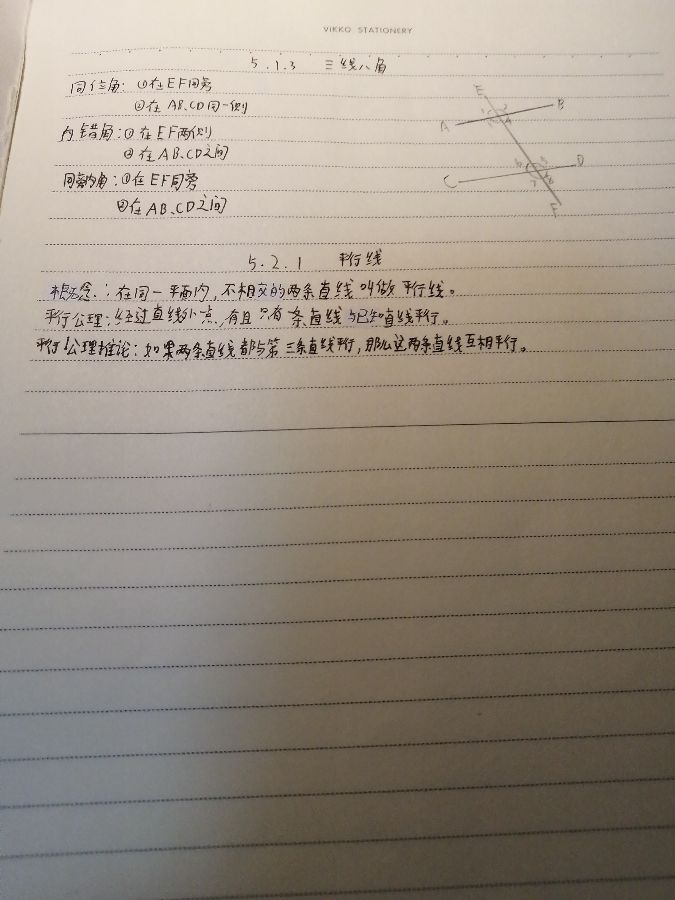 VIKKO STATIONERY
5.1.3 三线八角
同位角：①在EF同旁
②在AB、CD同一侧
内错角：①在EF两侧
②在AB、CD之间
同旁内角：①在EF同旁
②在AB、CD之间
E
B
A
D
C
F
5.2.1 平行线
概念：在同一平面内，不相交的两条直线叫做平行线。
平行公理：经过直线外一点，有且只有一条直线与已知直线平行。
平行公理推论：如果两条直线都与第三条直线平行，那么这两条直线互相平行。